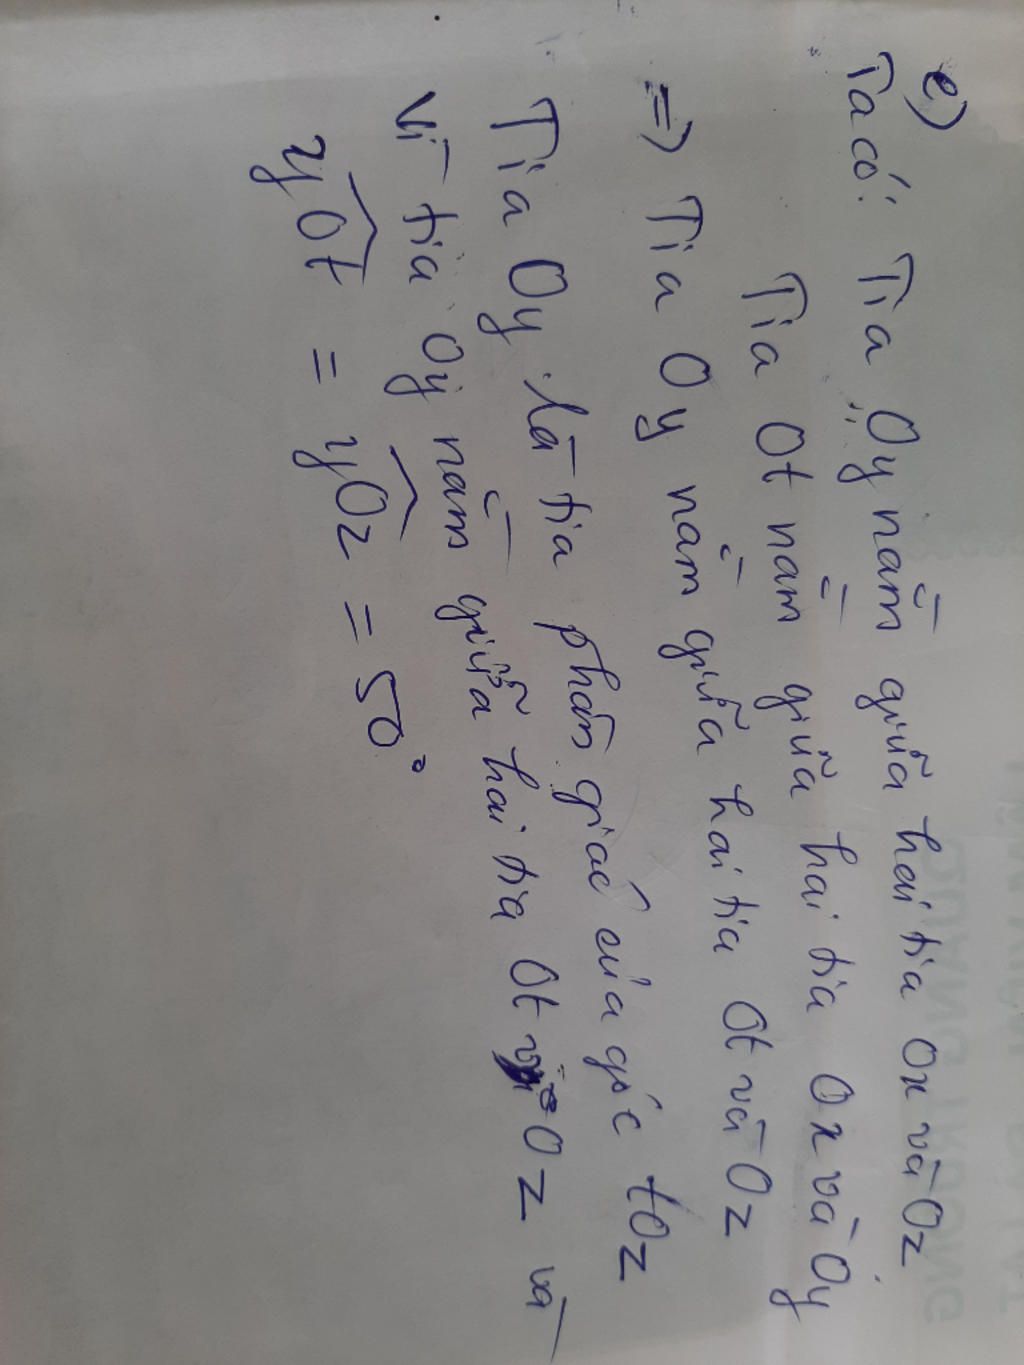 e)
Ta có: Tia Oy nằm giữa hai tia Ox và Oz
Tia Ot nằm giữa hai tia Ox và Oy
=> Tia Oy nằm giữa hai tia Ot và Oz
Tia Oy là tia phân giác của góc tOz
Vì tia Oy nằm giữa hai tia Ot và Oz và
yOt = yOz = 50°